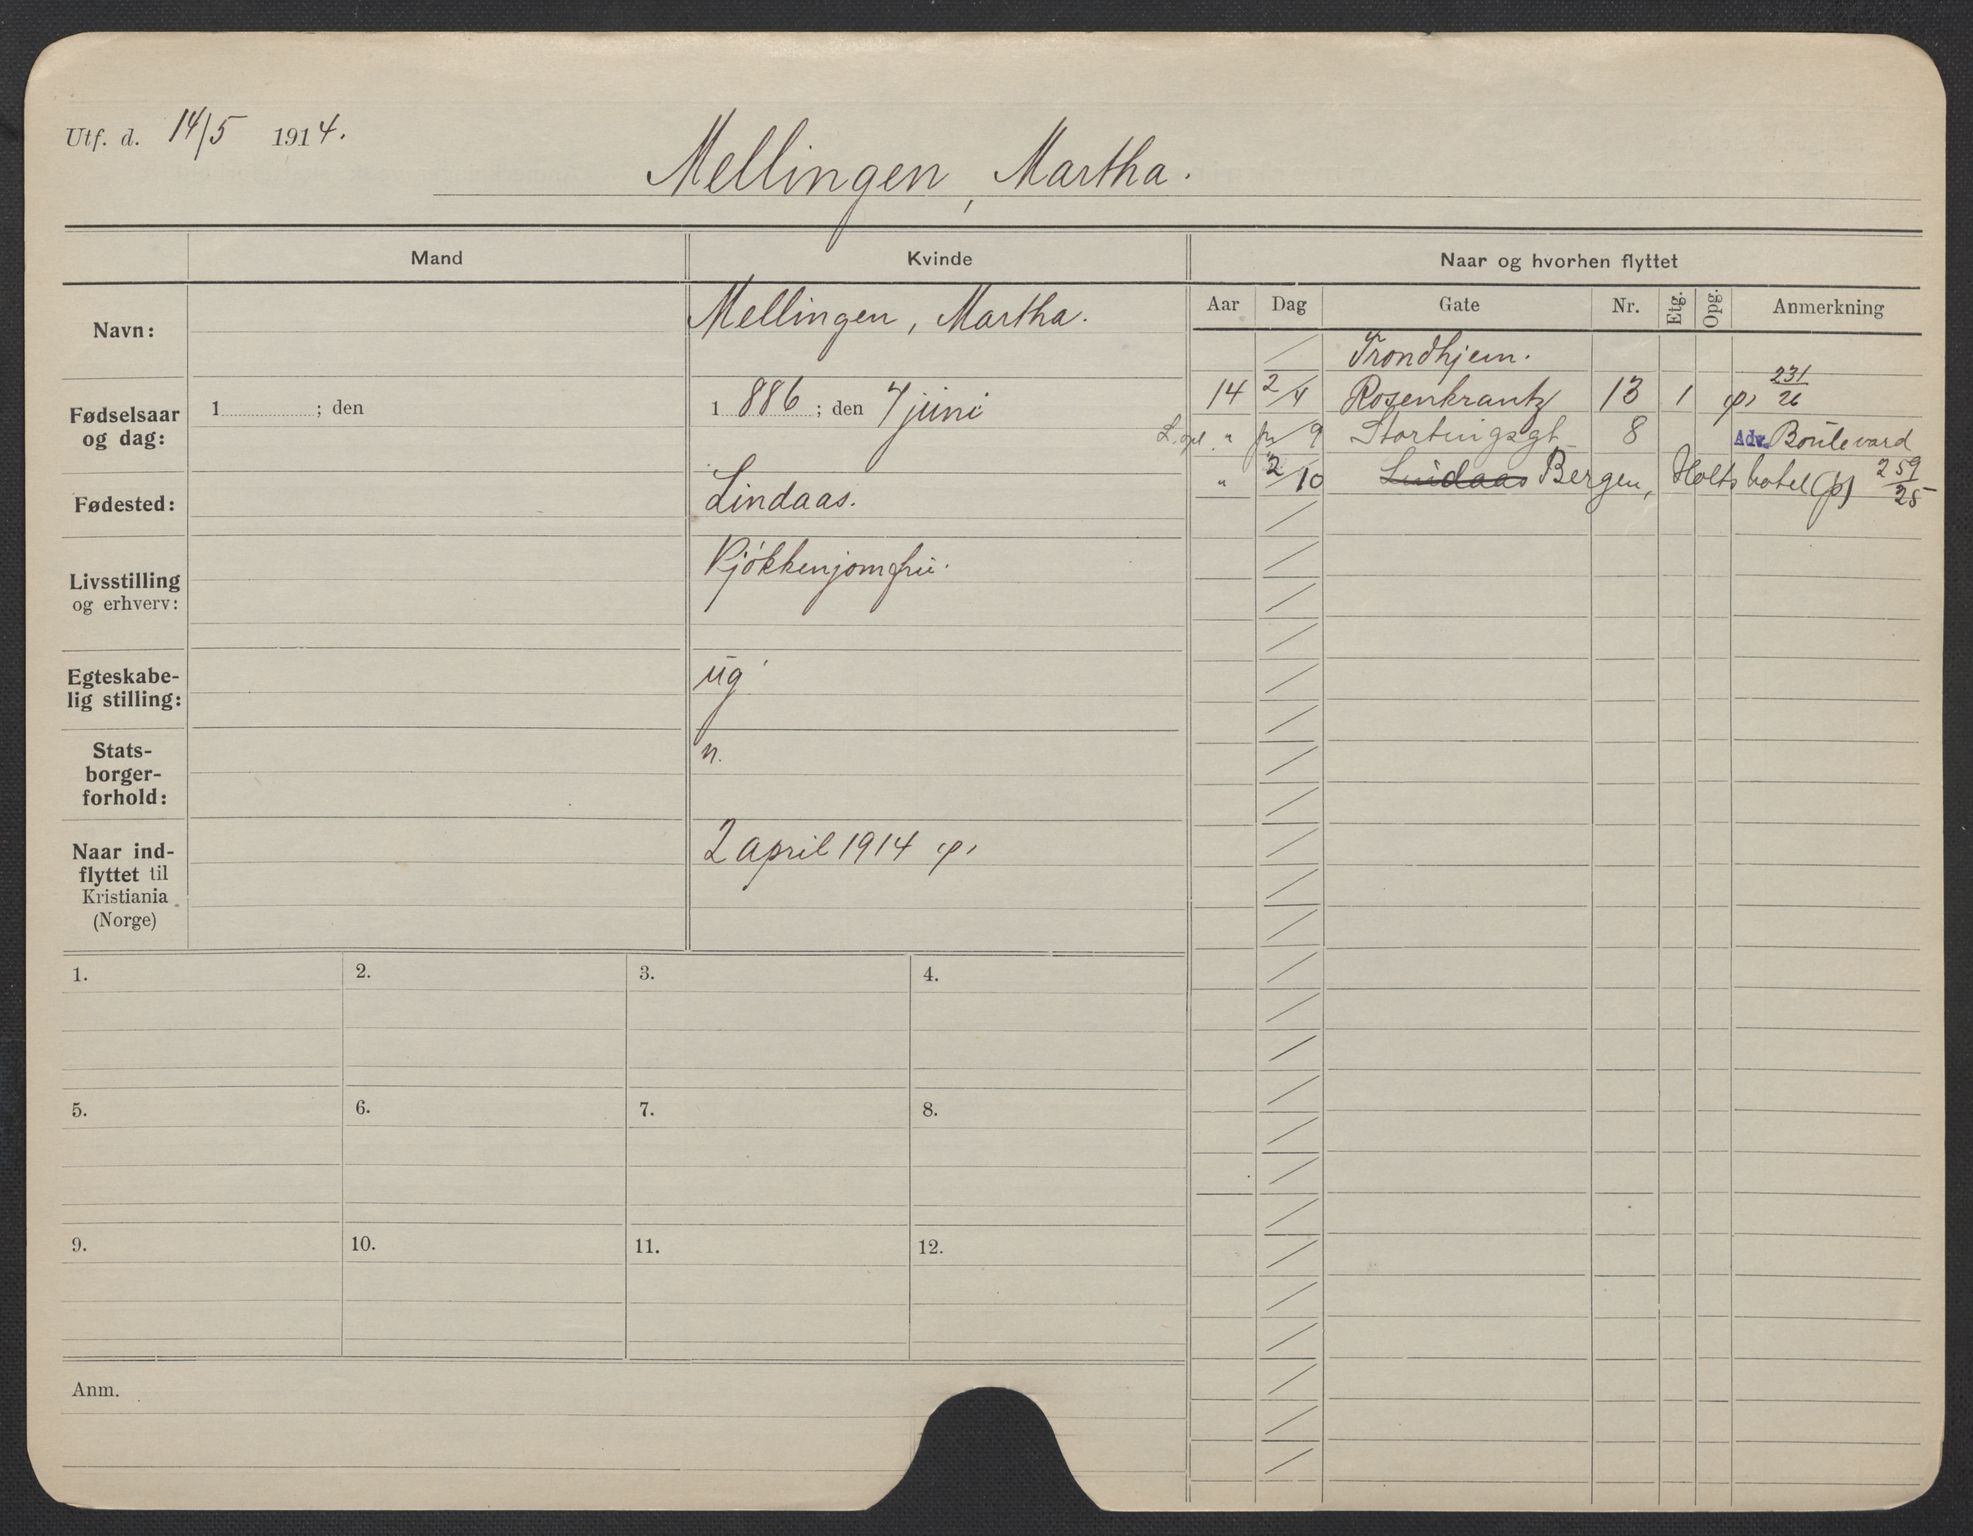 Utf. d. 14/5 1914.
Mellingen, Martha.
Mand
Kvinde
Naar og hvorhen flyttet
Aar Dag Gate Nr. Etg. Opg. Anmerkning
Navn:
Mellingen, Martha.
Fødselsaar og dag:
1 ; den
1 886 ; den 7 juni
Fødested:
Lindaas.
Livsstilling og erhverv:
Kjøkkenjomfru.
Egteskabe-
lig stilling:
ug
Stats-
borger-
forhold:
n.
Naar ind-
flyttet til
Kristiania
(Norge)
2 april 1914
Trondhjem.
14 2/4 Rosenkrantz 13 1 231/26
" /9 Stortingsgt 8 Adr. Boulevard
" 2/10 Lindaas Bergen, Holts hotel (p) 259/25
1. 2. 3. 4.
5. 6. 7. 8.
9. 10. 11. 12.
Anm.